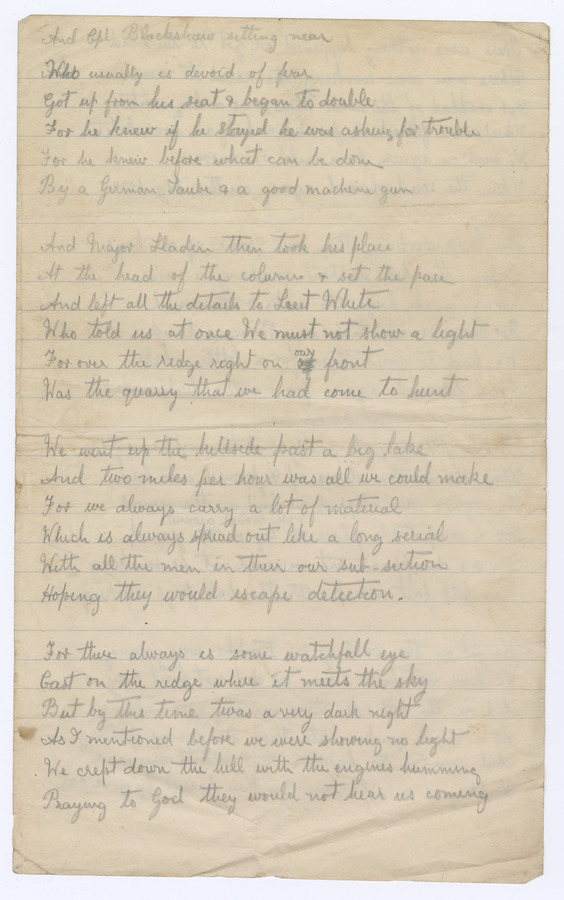 And Cpl Blackshaw sitting near
Who usually is devoid of fear
Got up from his seat & began to double
For he knew if he stayed he was asking for trouble
For he knew before what can be done
By a German Taube & a good machine gun
And Major Sladen then took his place
At the head of the column & set the pace
And left all the details to Lieut White
Who told us at once We must not show a light
For over the ridge right on our front
Was the quarry that we had come to hunt
We went up the hillside past a big lake
And two miles per hour was all we could make
For we always carry a lot of material
Which is always spread out like a long serial
With all the men in their our sub-section
Hoping they would escape detection.
For there always is some watchfull eye
Cast on the ridge where it meets the sky
But by this time twas a very dark night
As I mentioned before we were showing no light
We crept down the hill with the engines humming
Praying to God they would not hear us coming